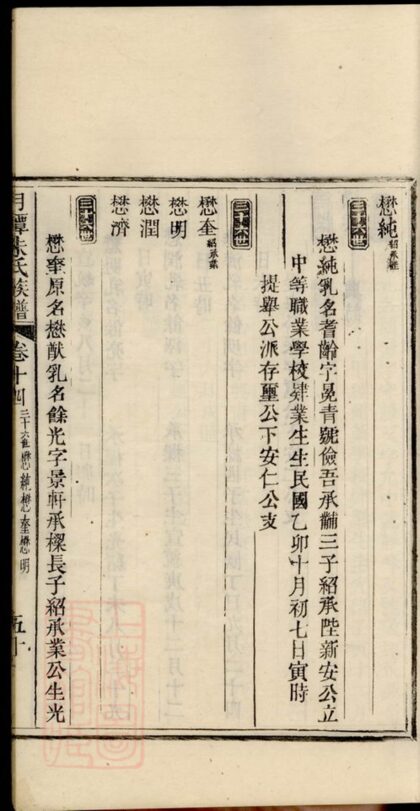 懋純紹承陞
三十六世
懋純乳名耆齡字冕青號儉吾承黼三子紹承陛新安公立
中等職業學校肄業生生民國乙卯十月初七日寅時
提舉公派存璽公下安仁公支
三十六世
懋奎紹承業
懋明
懋潤
懋濟
三十六世
懋奎原名懋猷乳名餘光字景軒承樑長子紹承業公生光
月潭朱氏族譜
卷十四
三十六世懋純懋奎懋明
五十